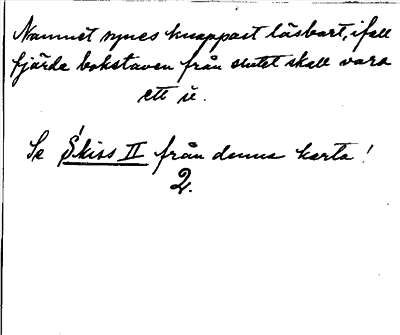 Namnet synes knappast läsbart, ifall
fjärde bokstaven från slutet skall vara
ett ü.
Se Skiss II från denna karta!
2.